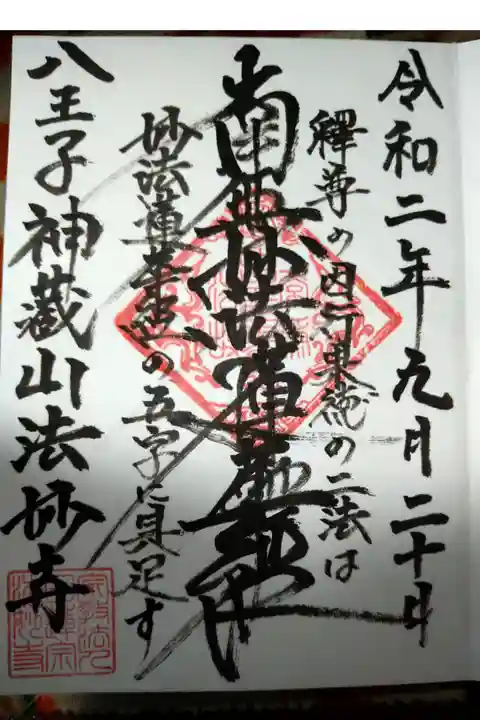 令和二年九月二十日
釋尊の因行果徳の二法は
南無妙法蓮華経
妙法蓮華経の五字に具足す
八王子神藏山法妙寺
宗教法人
日蓮宗
法妙寺